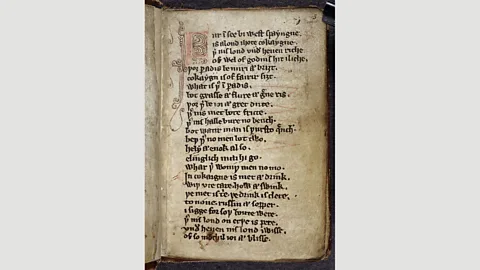 Fur ī see bi west spayngne.
is a lond ihote cokaygne.
þ̉ nis lond vnd̉ heuen riche.
of wel of godnis hit iliche.
þoȝ ꝑadis be miri ⁊ briȝt.
cokaygn is of fairir siȝt.
what is þ̉ ī ꝑadis.
bot grasse ⁊ flure ⁊ g̉ne ris.
þoȝ þ̉ be ioi ⁊ gret dute.
þ̉ nis met bote frute.
þ̉ nis halle bure no bench.
bot watir man is þursto q̄nch.
beþ þ̉ no men bot two.
hely ⁊ enok al so.
elinglich mai hi go.
whar þ̉ woniþ men no mo.
In cokaigne is met ⁊ drink.
wiþ vte care how ⁊ swink.
þe met is trie þe drink is clere.
to none russin ⁊ sopper.
i sigge for soþ boute were.
þ̉ nis lond on erþe is pere.
vnd̉ heuen nis lond iwisse.
of so mochil ioi ⁊ blisse.